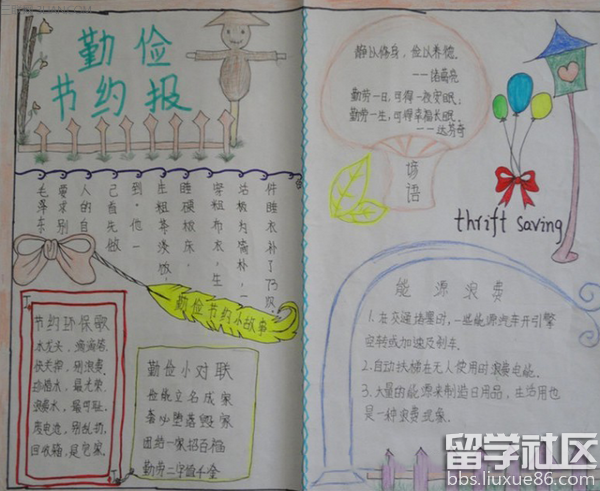 勤俭
节约报
毛泽东
要求别
人的自
己首先做
到,他一
生粗茶淡饭,
睡硬板床,
穿粗布衣,生
活极为简朴,一
件睡衣补了73次.
勤俭节约小故事
节约环保歌
水龙头,滴滴答,
快关掉,别浪费.
珍惜水,最光荣.
浪费水,最可耻.
废电池,别乱扔,
回收箱,是它家.
勤俭小对联
俭能立名成家
奢必堕落毁家
团结一家招百福
勤劳二字值千金
静以修身,俭以养德.
——诸葛亮
勤劳一日,可得一夜安眠;
勤劳一生,可得幸福长眠.
——达芬奇
谚语
thrift saving
能源浪费
1.在交通堵塞时,一些能源汽车开引擎
空转或加速及刹车.
2.自动扶梯在无人使用时浪费电能.
3.大量的能源来制造日用品,生活用也
是一种浪费现象.
留学社区
bbs.liuxue86.com